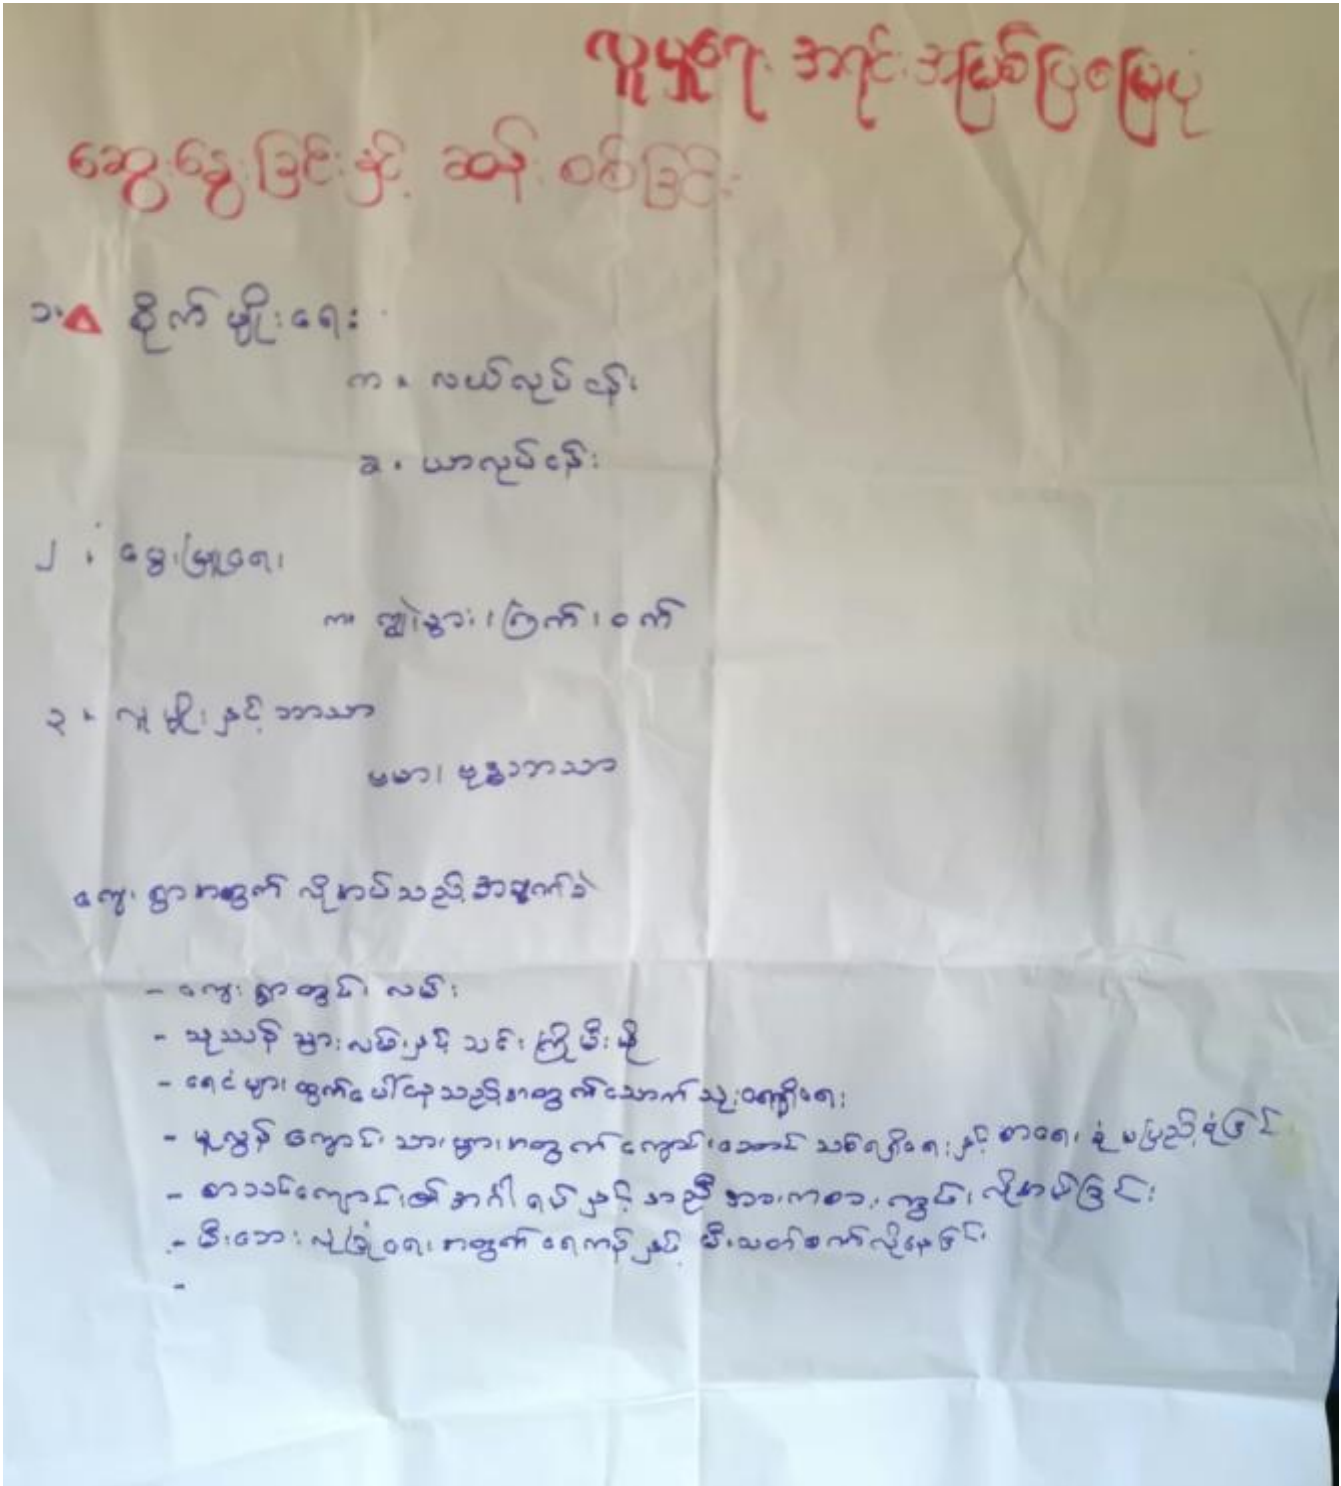 လူမှုရေး အရင်းအမြစ်ပြမြေပုံ
ဆွေးနွေးခြင်းနှင့် ဆန်းစစ်ခြင်း
၁။ စိုက်မျိုးရေး
က။ လယ်လုပ်ငန်း
ခ။ ယာလုပ်ငန်း
၂။ မွေးမြူရေး
က။ ကျွဲ၊ နွား၊ ကြက်၊ ဝက်
၃။ လူမျိုးနှင့်ဘာသာ
ဗမာ၊ ဗုဒ္ဓဘာသာ
ကျေးရွာအတွက် လိုအပ်သည့်အချက်
- ကျေးရွာတွင်း လမ်း
- သုသာန် သွားလမ်းနှင့် သင်္ဂြိုဟ်မီးဖို
- ရေငံများထွက်ပေါ်နေသည့်အတွက်သောက်သုံးရေရရှိရေး
- မူလွန်ကျောင်းသားများအတွက် ကျောင်းဆောင်သစ်ရရှိရေးနှင့် စာရေးခုံ မပြည့်စုံခြင်း
- စာသင်ကျောင်း၏ အင်္ဂါရပ်နှင့်အညီ အားကစားကွင်း လိုအပ်ခြင်း
- မီးဘေးလုံခြုံရေးအတွက် ရေကန်နှင့် မီးသတ်စက်လိုနေခြင်း
-